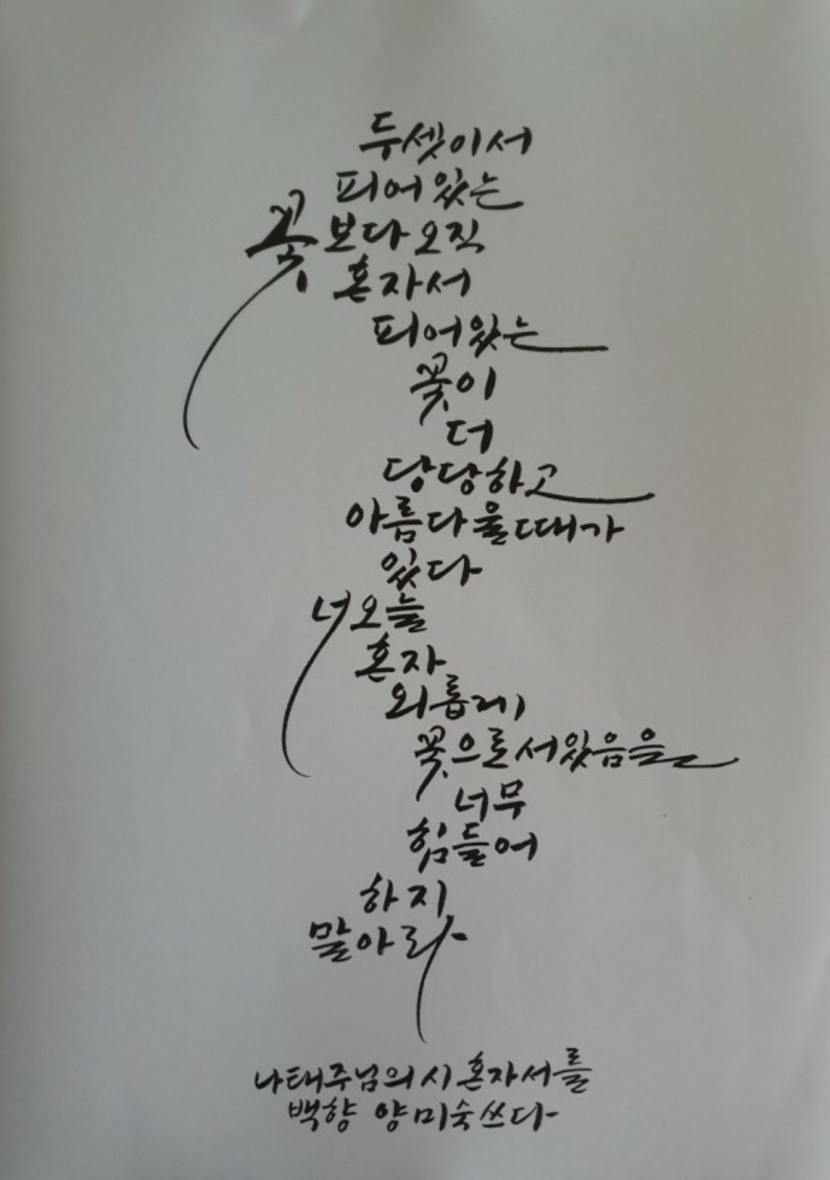 두셋이서
피어있는
꽃보다 오직
혼자서
피어있는
꽃이
더
당당하고
아름다울때가
있다
너 오늘
혼자
외롭게
꽃으로 서있음을
너무
힘들어
하지
말아라
나태주님의 시 혼자서를
백향 양미숙쓰다